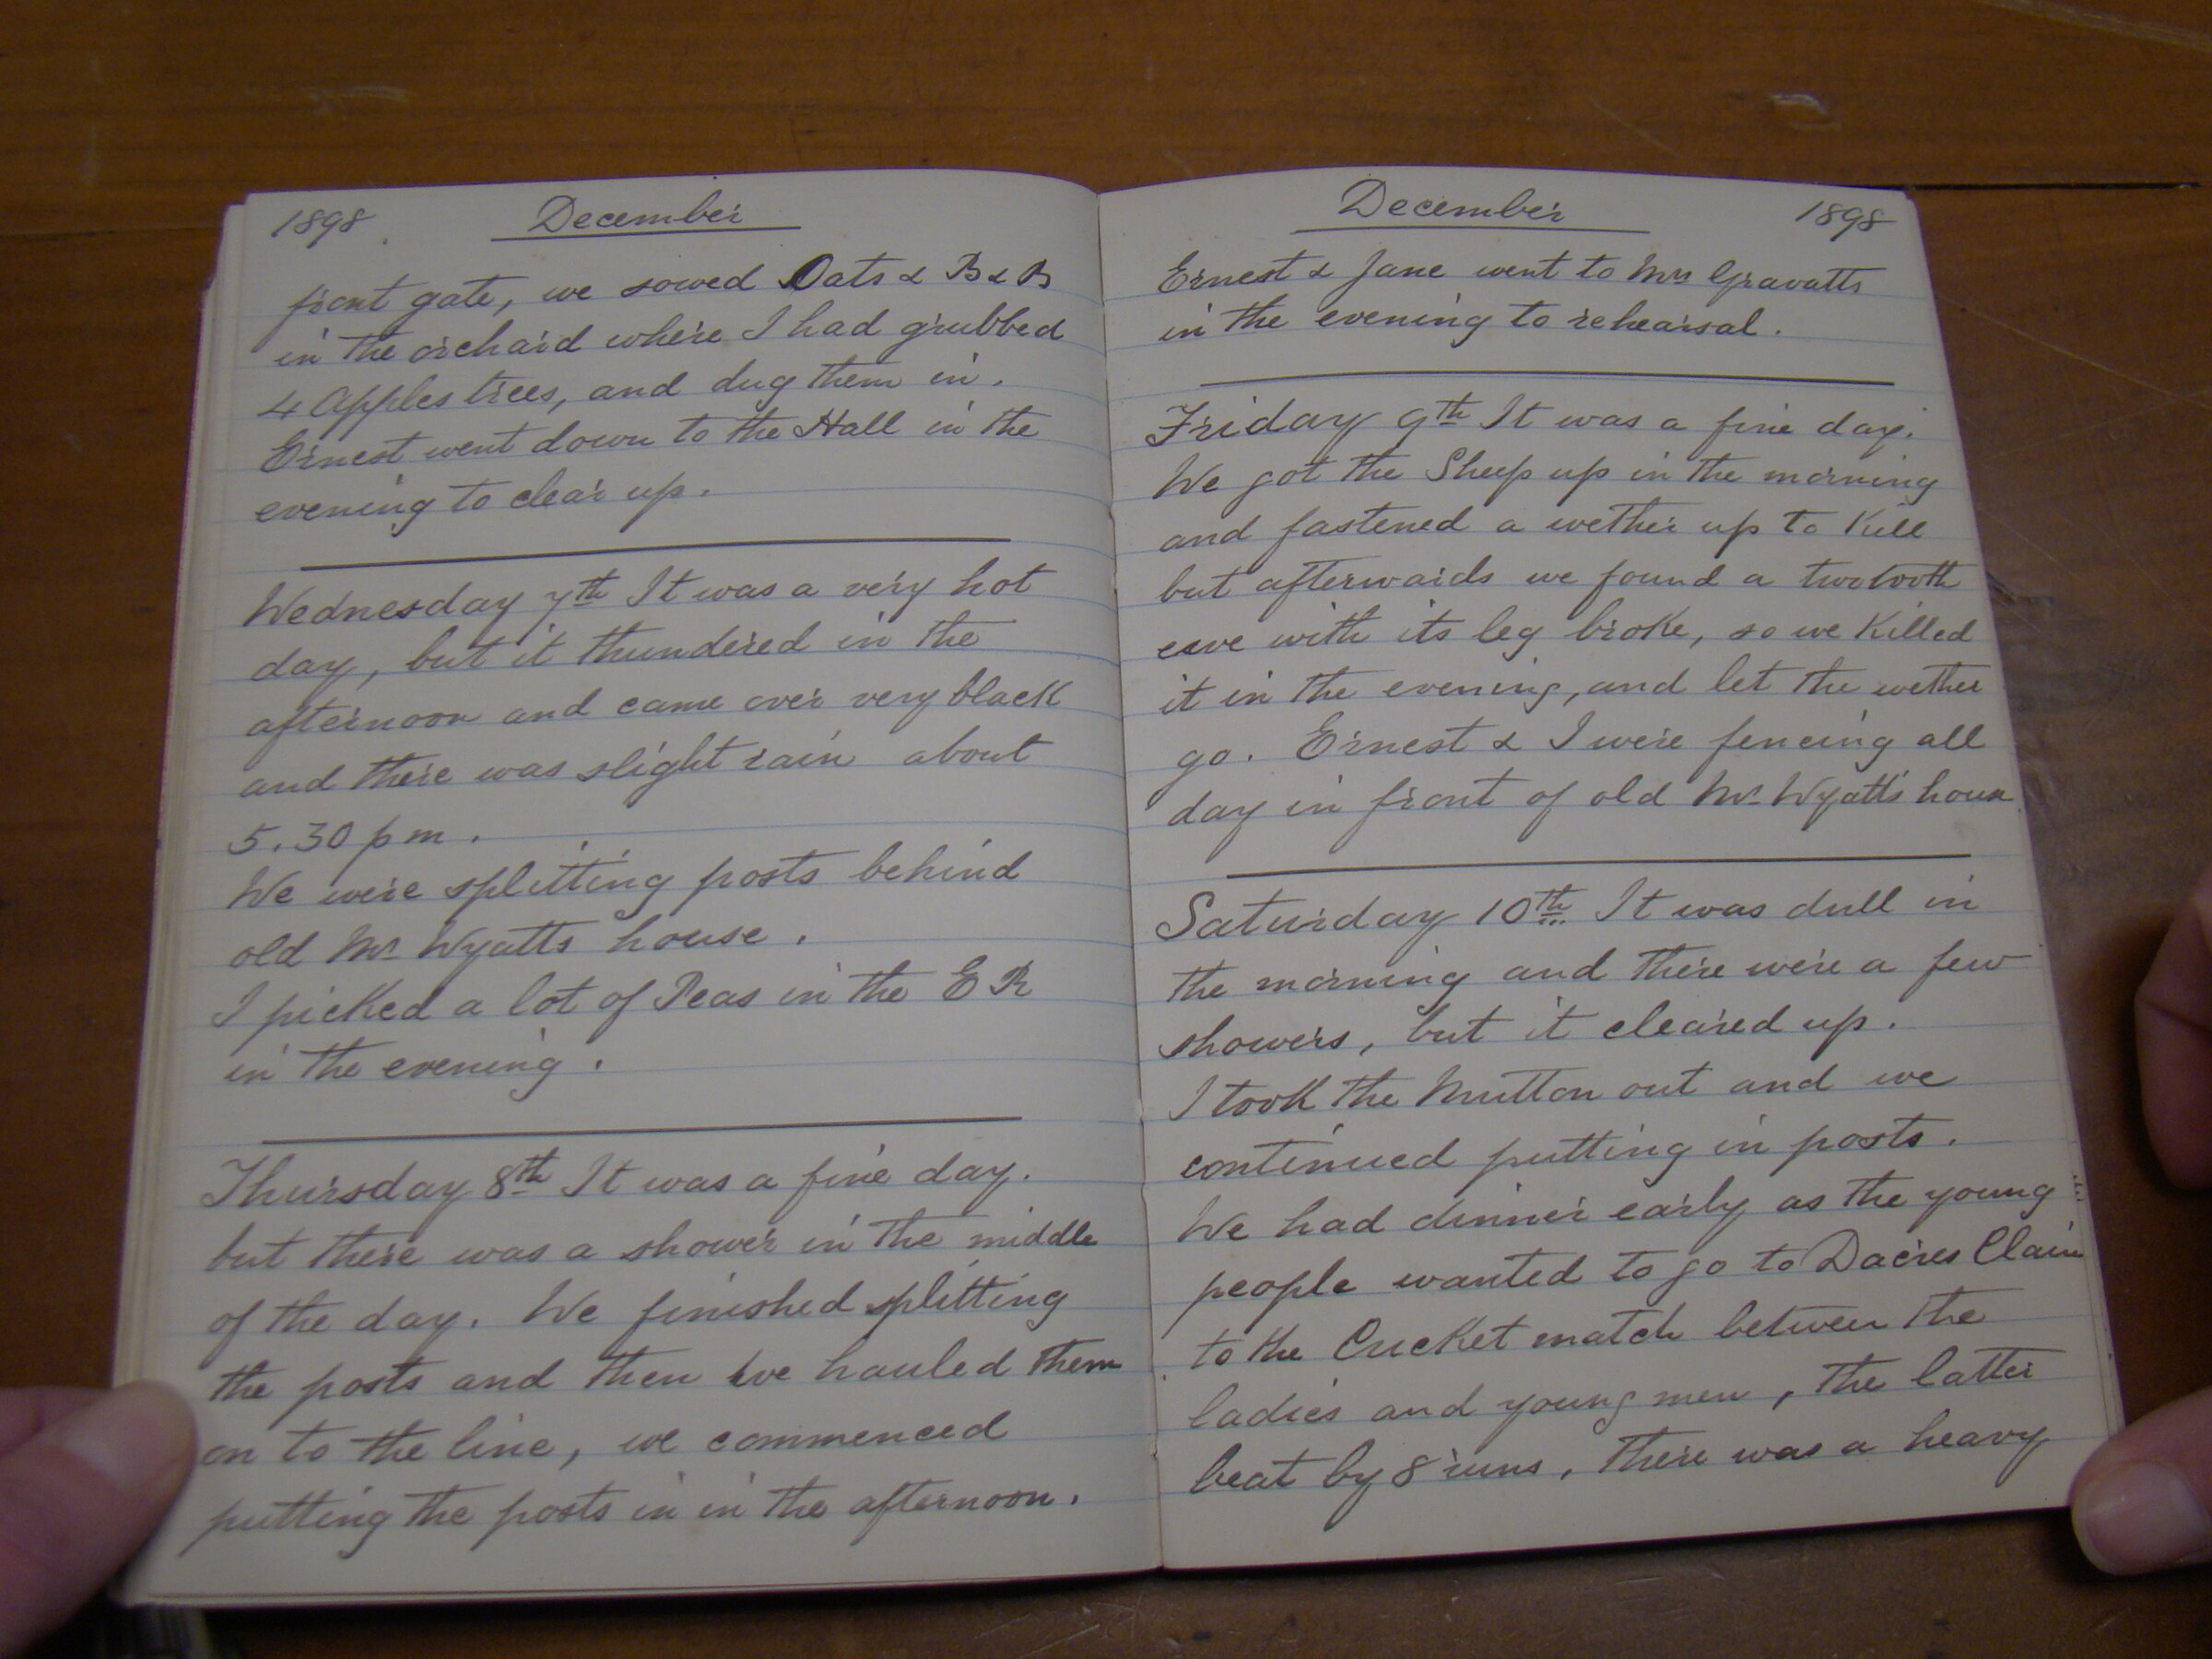 1898 December
front gate, we sowed Oats & B & B
in the orchard where I had grubbed
4 Apples trees, and dug them in.
Ernest went down to the Hall in the
evening to clear up.
Wednesday 7th It was a very hot
day, but it thundered in the
afternoon and came over very black
and there was slight rain about
5.30 pm.
We were splitting posts behind
old Mr Wyatts house.
I picked a lot of Peas in the E R
in the evening.
Thursday 8th It was a fine day.
but there was a shower in the middle
of the day. We finished splitting
the posts and then we hauled them
on to the line, we commenced
putting the posts in in the afternoon.
December 1898
Ernest & Jane went to Mrs Gravatts
in the evening to rehearsal.
Friday 9th It was a fine day.
We got the Sheep up in the morning
and fastened a wether up to Kill
but afterwards we found a twotooth
ewe with its leg broke, so we Killed
it in the evening, and let the wether
go. Ernest & I were fencing all
day in front of old Mr Wyatts house
Saturday 10th It was dull in
the morning and there were a few
showers, but it cleared up.
I took the Mutton out and we
continued putting in posts.
We had dinner early as the young
people wanted to go to Dacres Claim
to the Cricket match between the
ladies and young men, the latter
beat by 8 runs, There was a heavy